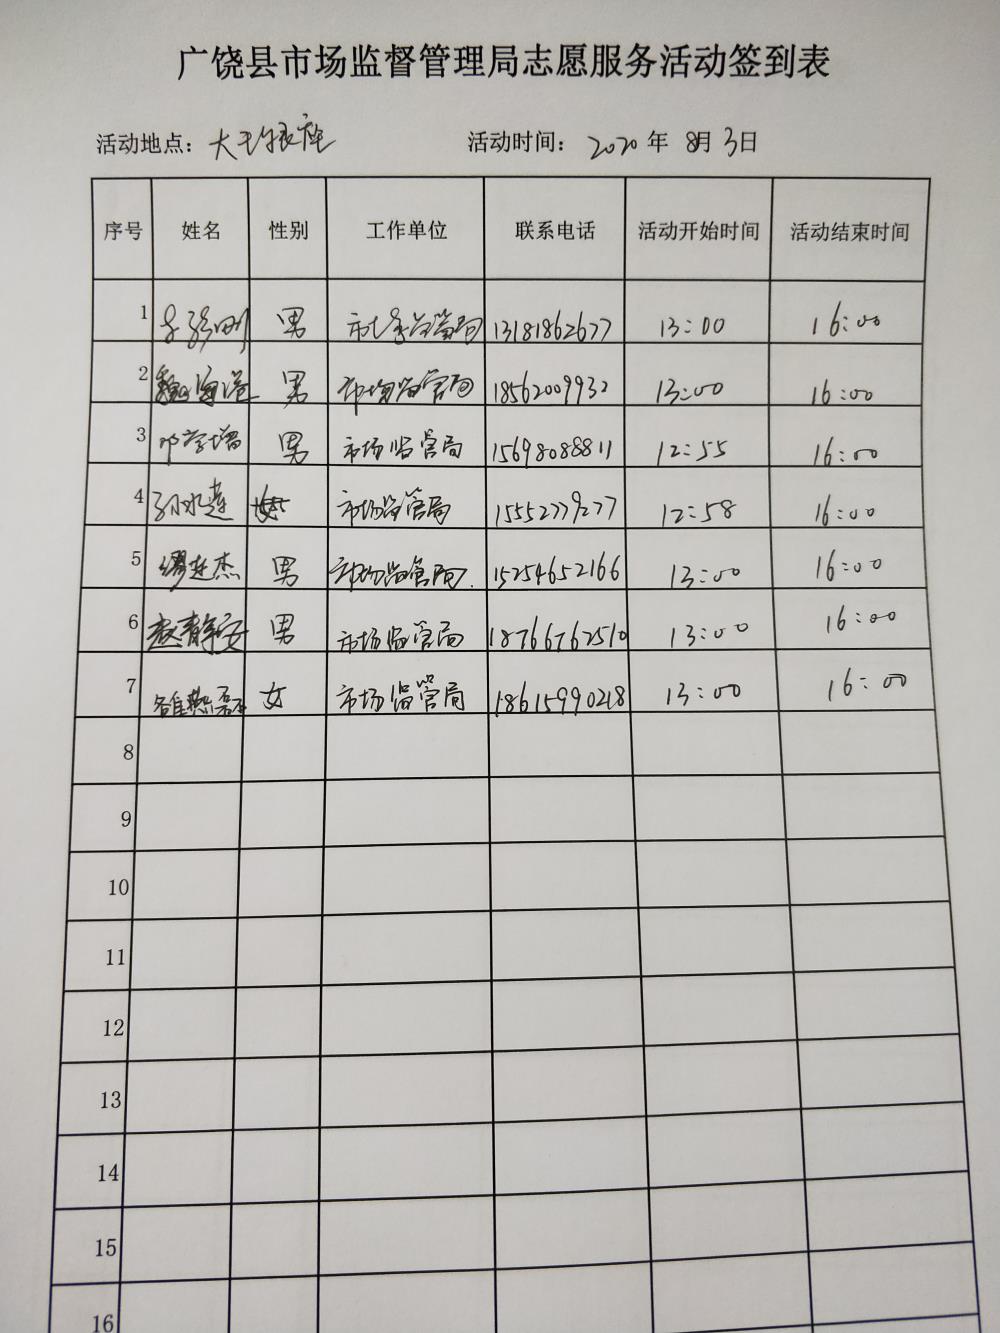 广饶县市场监督管理局志愿服务活动签到表
活动地点： 大王银座 活动时间： 2020 年 8月 3日
序号 姓名 性别 工作单位 联系电话 活动开始时间 活动结束时间
1 男 市场监管局 13181862677 13:00 16:00
2 魏海港 男 市场监管局 18562009932 13:00 16:00
3 邓学增 男 市场监管局 15698088811 12:55 16:00
4 孙水莲 女 市场监管局 15552779277 12:58 16:00
5 男 市场监管局. 15254652166 13:00 16:00
6 赵静安 男 市场监管局 18766762510 13:00 16:00
7 女 市场监管局 18615990218 13:00 16:00
8
9
10
11
12
13
14
15
16